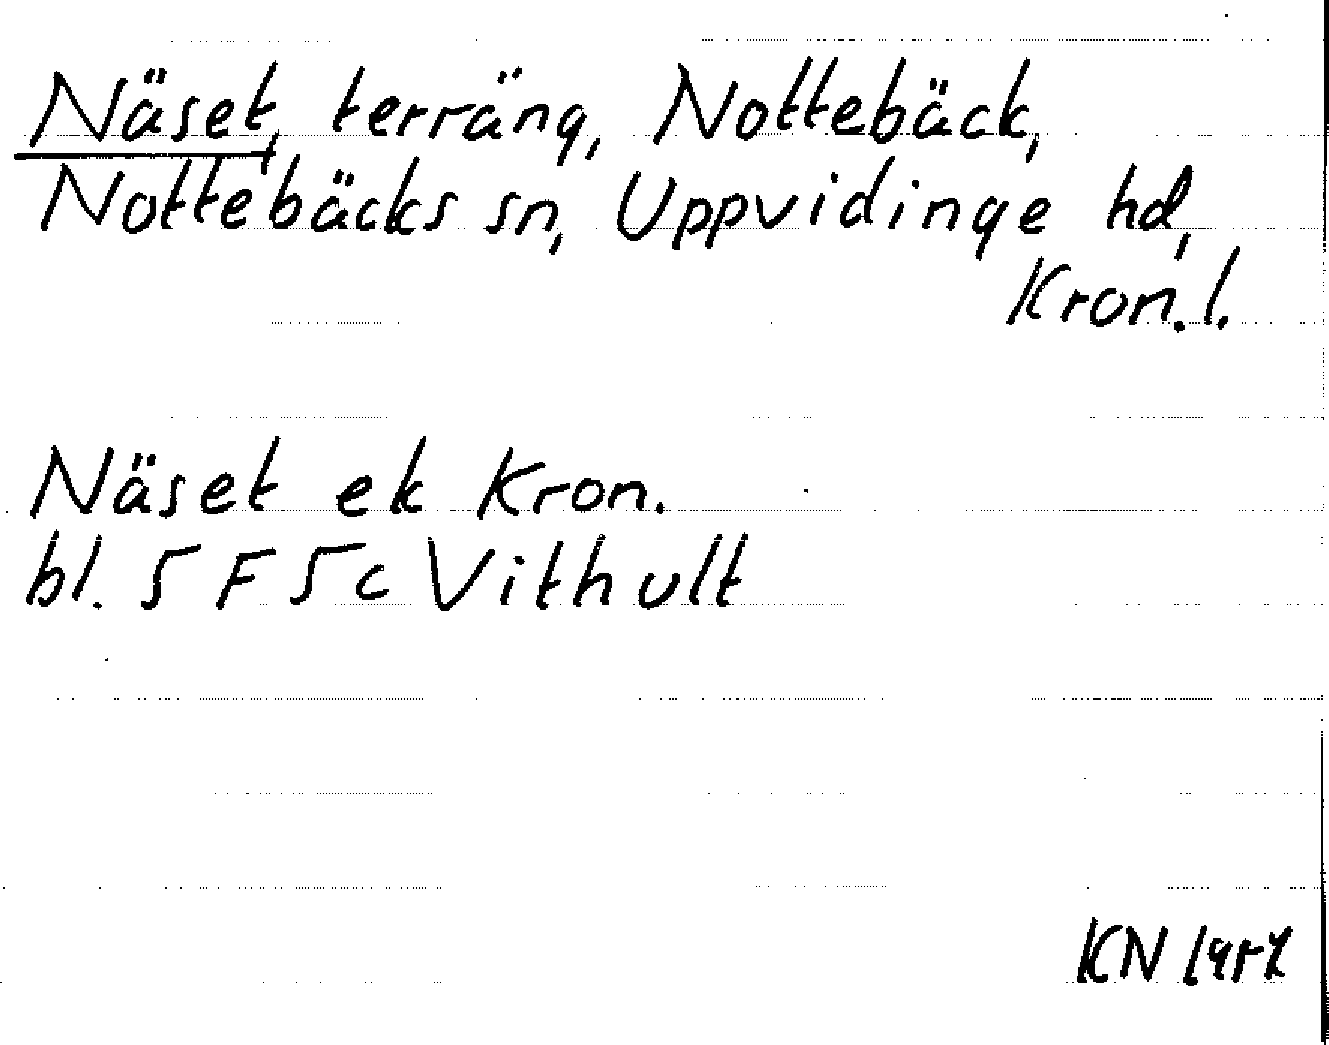 Näset, terräng, Nottebäck,
Nottebäcks sn, Uppvidinge hd,
Kron. l.
Näset ek Kron.
bl. 5 F 5 c Vithult
KN